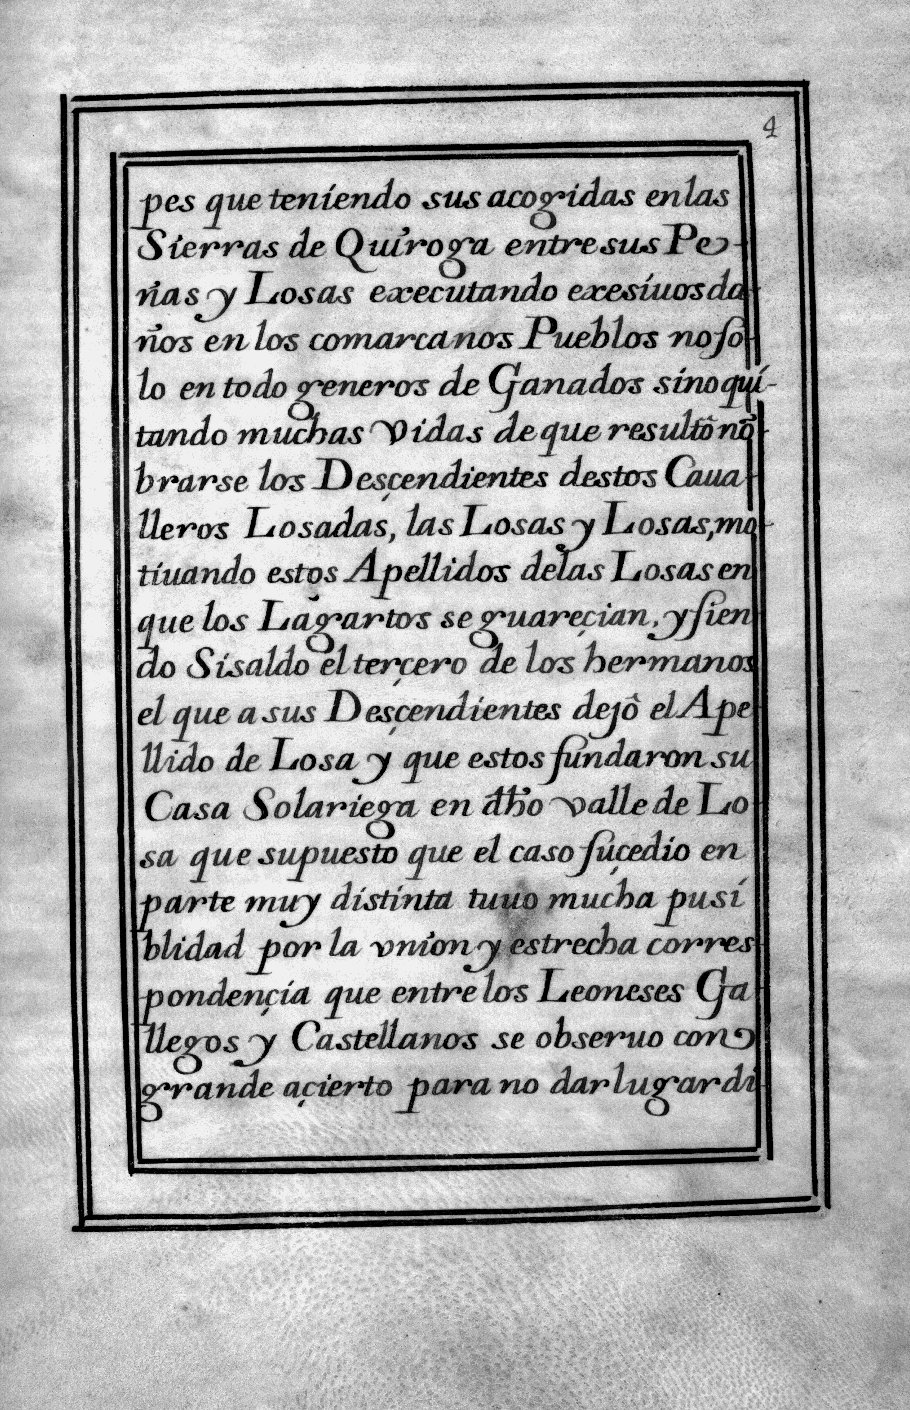 4
pes que teniendo sus acogidas en las
Sierras de Quiroga entre sus Pe-
ñas y Losas executando exesiuos da-
ños en los comarcanos Pueblos no ſo-
lo en todo generos de Ganados sino qui-
tando muchas Vidas de que resultô nõ-
brarse los Desçendientes destos Caua-
lleros Losadas, las Losas y Losas, mo-
tiuando estos Apellidos de las Losas en
que los Lagartos se guareçian, y ſien-
do Sisaldo el terçero de los hermanos
el que a sus Desçendientes dejô el Ape-
llido de Losa y que estos fundaron su
Casa Solariega en dho valle de Lo-
sa que supuesto que el caso ſuçedio en
parte muy distinta tuuo mucha pusi
blidad por la vnion y estrecha corres-
pondençia que entre los Leoneses Ga-
llegos y Castellanos se obseruo con
grande açierto para no dar lugar di-